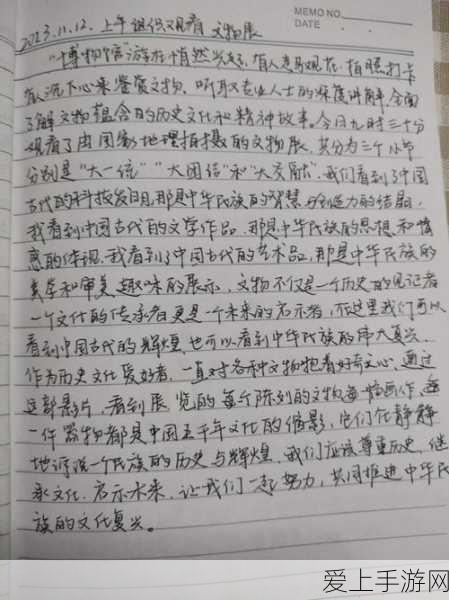 MEMO NO.
DATE
2023.11.12.上午组织观看 文物展
"博物馆"游在悄然兴起,有人走马观花、拍照打卡
有沉下心来鉴赏文物、听取专业人士的深度讲解,全面
了解文物蕴含的历史文化和精神故事。今日九时三十分
观看了由国家地理拍摄的文物展,其分为三个小节
分别是"大一统""大团结"和"大贡献",我们看到了中国
古代的科技发明,那是中华民族的智慧与创造力的结晶,
我看到中国古代的文学作品,那是中华民族的思想和情
感的体现,我看到了中国古代的艺术品,那是中华民族的
美学和审美趣味的展示,文物不仅是一个历史的见证者
一个文化的传承者更是一个未来的启示者,在这里我们可以
看到中国古代的辉煌,也可以看到中华民族的伟大复兴.
作为历史文化爱好者,一直对各种文物抱着好奇之心,通过
这部影片,看到展览的每个陈列的文物每一幅画作,每
一件器物都是中国五千年文化的缩影,它们在静静
地诉说一个民族的历史与辉煌,我们应该尊重历史,继
承文化,启示未来,让我们一起努力,共同推进中华民
族的文化复兴。
爱上手游网